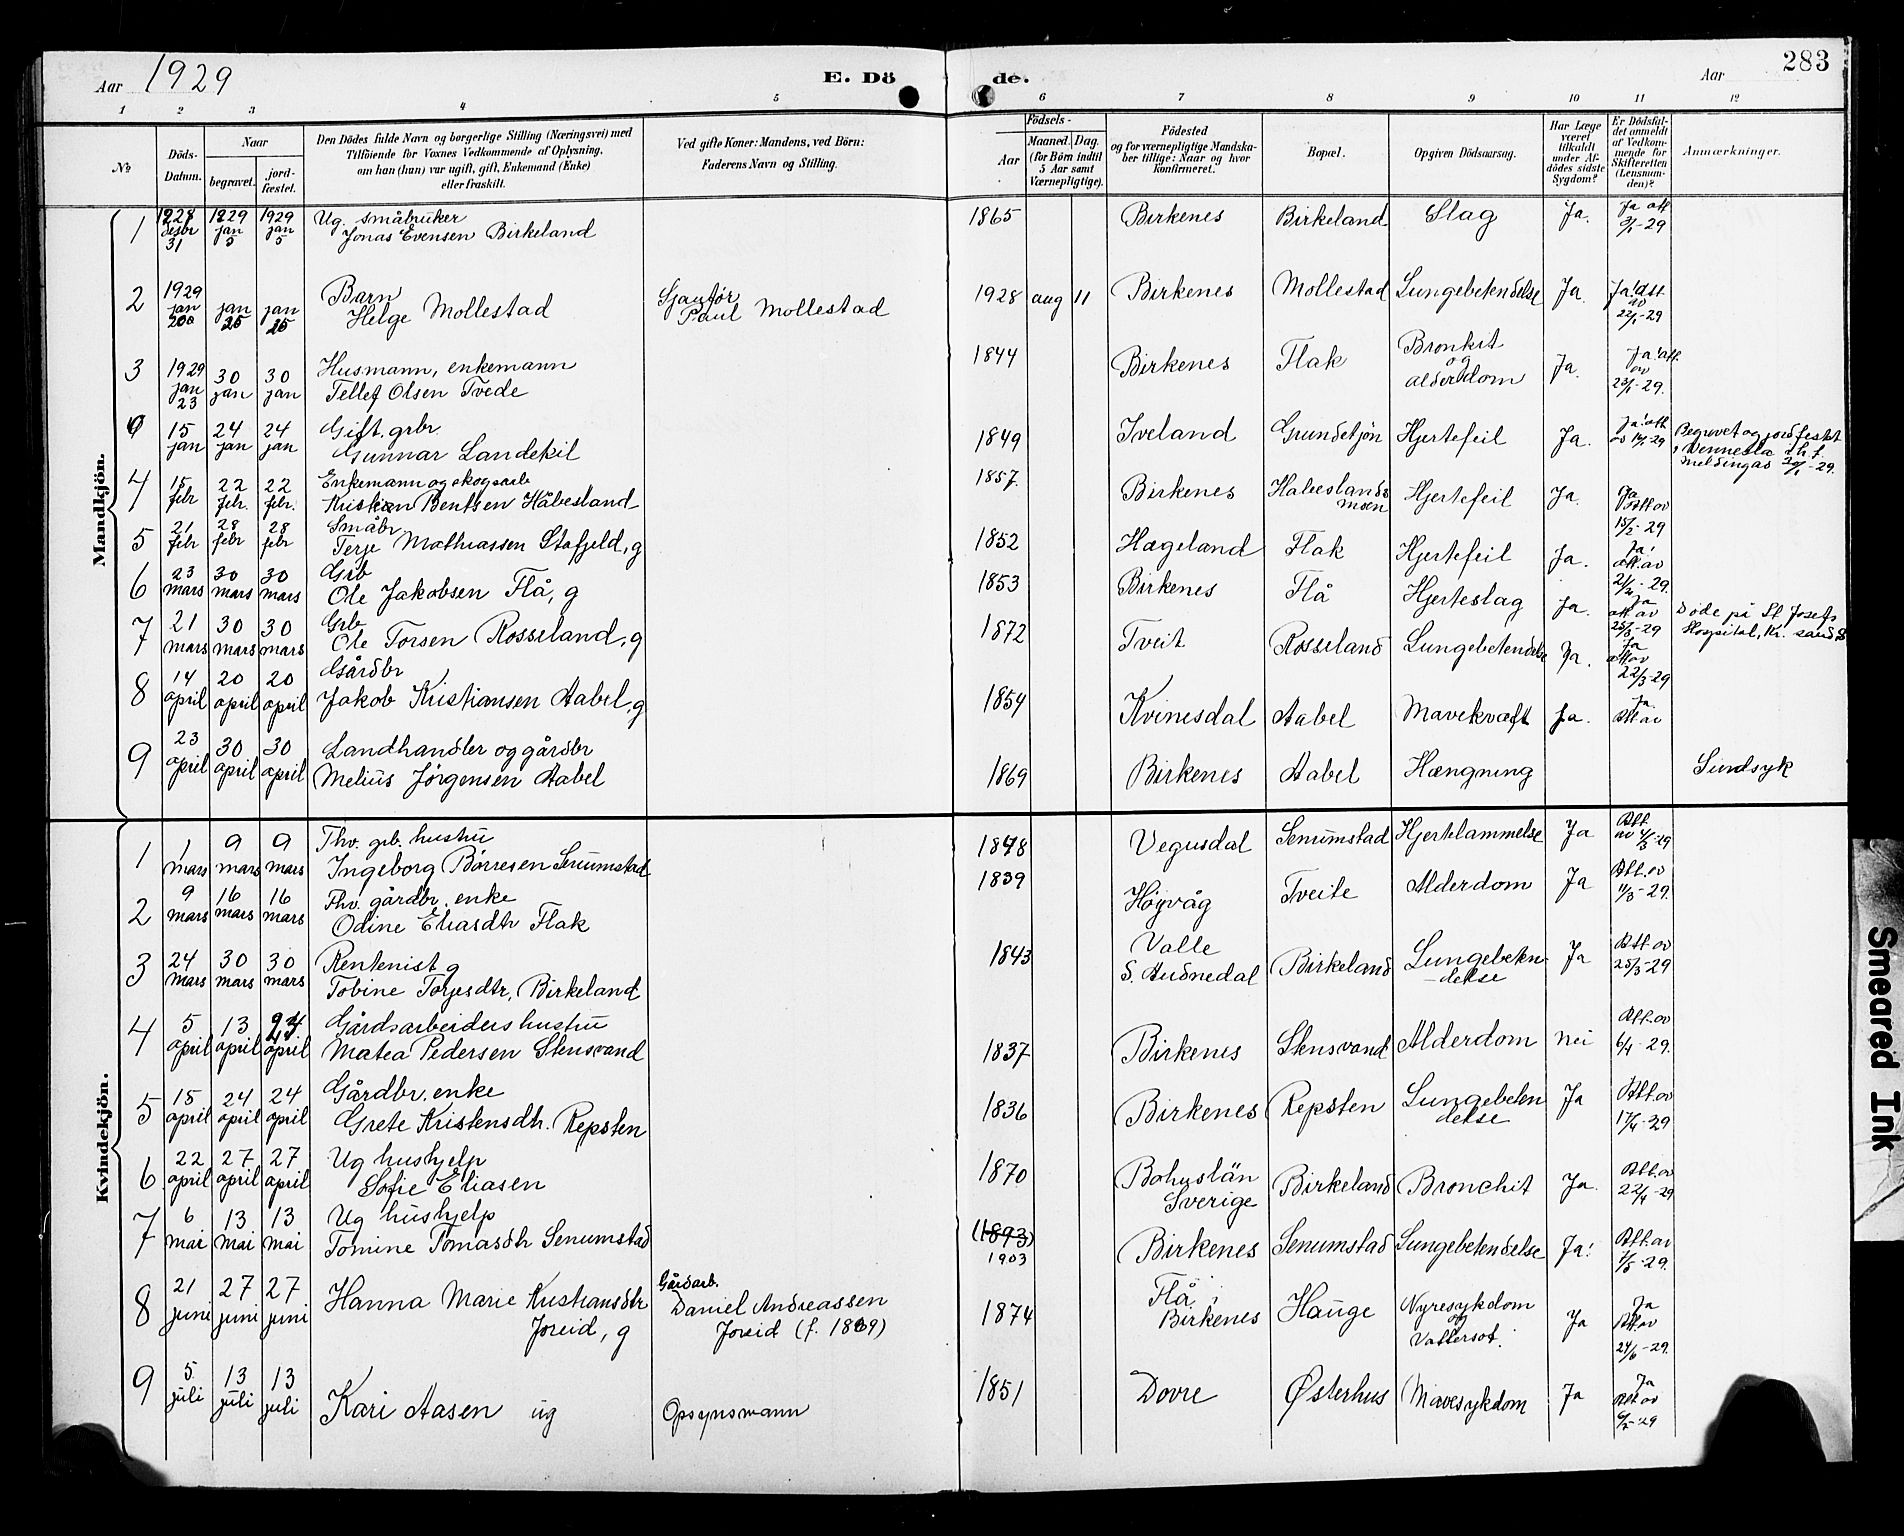 Aar 1929 E. Dö de. Aar 283
1 2 3 4 5 6 7 8 9 10 11 12
No
Döds-
Datum.
Naar
begravet.
jord-
fæstet.
Den Dödes fulde Navn og borgerlige Stilling (Næringsvei) med
Tilföiende for Voxnes Vedkommende af Oplysning,
om han (hun) var ugift, gift, Enkemand (Enke)
eller fraskilt.
Ved gifte Koner: Mandens, ved Börn:
Faderens Navn og Stilling.
Födsels-
Aar
Maaned. Dag.
(for Börn indtil
5 Aar samt
Værnepligtige).
Födested
og for værnepligtige Mandska-
ber tillige: Naar og hvor
konfirmeret.
Bopæl.
Opgiven Dödsaarsag.
Har Læge
været
tilkaldt
under Af-
dödes sidste
Sygdom?
Er Dödsfal-
det anmeldt
af Vedkom-
mende for
Skifteretten
(Lensman-
den)?
Anmærkninger.
Mandkjön.
1 1928 desbr 31 1929 jan 5 1929 jan 5 Ug. småbruker
Jonas Evensen Birkeland 1865 Birkenes Birkeland Slag Ja. Ja att 3/1-29
2 1929 jan 20 jan 25 jan 25 Barn
Helge Mollestad Sjauför
Paul Mollestad 1928 aug 11 Birkenes Mollestad Lungebetendelse Ja. Ja! att av 22/1-29
3 1929 jan 23 30 jan 30 jan Husmann, enkemann
Tellef Olsen Tvede 1844 Birkenes Flak Bronkit
og
alderdom Ja. Ja! att. av 23/1-29.
0 15 jan 24 jan 24 jan Gift. grbr.
Gunnar Landekil 1849 Iveland Grundetjön Hjertefeil Ja. Ja! att av 17/1-29 Begravet og jordfestet
i Vennesla
4 15 febr 22 febr. 22 febr. Enkemann og skogsarb
Kristian Bentsen Håbesland 1857. Birkenes Habeslands
moen Hjertefeil Ja. Ja Att av 15/2-29
5 21 febr 28 febr 28 febr Småbr.
Terje Mathiassen Stafjeld, g 1852 Hægeland Flak Hjertefeil Ja. Ja! att. av
6 23 mars 30 mars 30 mars Grb
Ole Jakobsen Flå, g 1853 Birkenes Flå Hjerteslag Ja. Ja att av 25/3-29
7 21 mars 30 mars 30 mars Grb
Ole Torsen Rosseland, g 1872 Tveit Rosseland Lungebetendelse Ja. Ja att av 22/3-29 Döde på St Josefs
Hospital, Kr. sand S
8 14 april 20 april 20 april Gårdbr
Jakob Kristiansen Aabel, g 1854 Kvinesdal Aabel Mavekræft Ja. Ja. Att av
9 23 april 30 april 30 april Landhandler og gårdbr
Melius Jørgensen Aabel 1869 Birkenes Aabel Hængning Sindsyk
Kvindekjön.
1 1 mars 9 mars 9 mars Fhv. grb. hustru
Ingeborg Børresen Senumstad 1848 Vegusdal Senumstad Hjertelammelse Ja Att. av 4/3-29
2 9 mars 16 mars 16 mars Fhv. gårdbr. enke
Odine Eliasdtr Flak 1839 Høgvåg Tveite Alderdom Ja Att. av 11/3-29.
3 24 mars 30 mars 30 mars Rentenist g
Tobine Torjesdtr, Birkeland 1843 Valle
S. Audnedal Birkeland Lungebeten-
delse Ja Att av 25/3-29
4 5 april 13 april 24 april Gårdsarbeiders hustru
Matea Pedersen Stensvand 1837 Birkenes Stensvand Alderdom nei Att. av 6/4-29.
5 15 april 24 april 24 april Gårdbr. enke
Grete Kristensdtr. Repsten 1836 Birkenes Repsten Lungebeten
delse Ja Att. av 17/4-29
6 22 april 27 april 27 april Ug hushjelp
Sofie Eliasen 1870 Bohuslän
Sverige Birkeland Bronchit Ja. Att. av 22/4-29
7 6 mai 13 mai 13 mai Ug hushjelp
Tomine Tomasdtr Senumstad (1893)
1903 Birkenes Senumstad Lungebetendelse Ja! Att. av 7/5-29.
8 21 juni 27 juni 27 juni Hanna Marie Kristiansdtr
Joreid, g Gårdarb.
Daniel Andreassen
Joreid (f. 1869) 1874 Flå,
Birkenes Hauge Nyresykdom
og
Vattersot. Ja Ja Att. av 24/6-29.
9 5 juli 13 juli 13 juli Kari Aasen ug Opsynsmann 1851 Dovre Østerhus Mavesykdom Ja Ja Att av 6/7-29
Smeared Ink